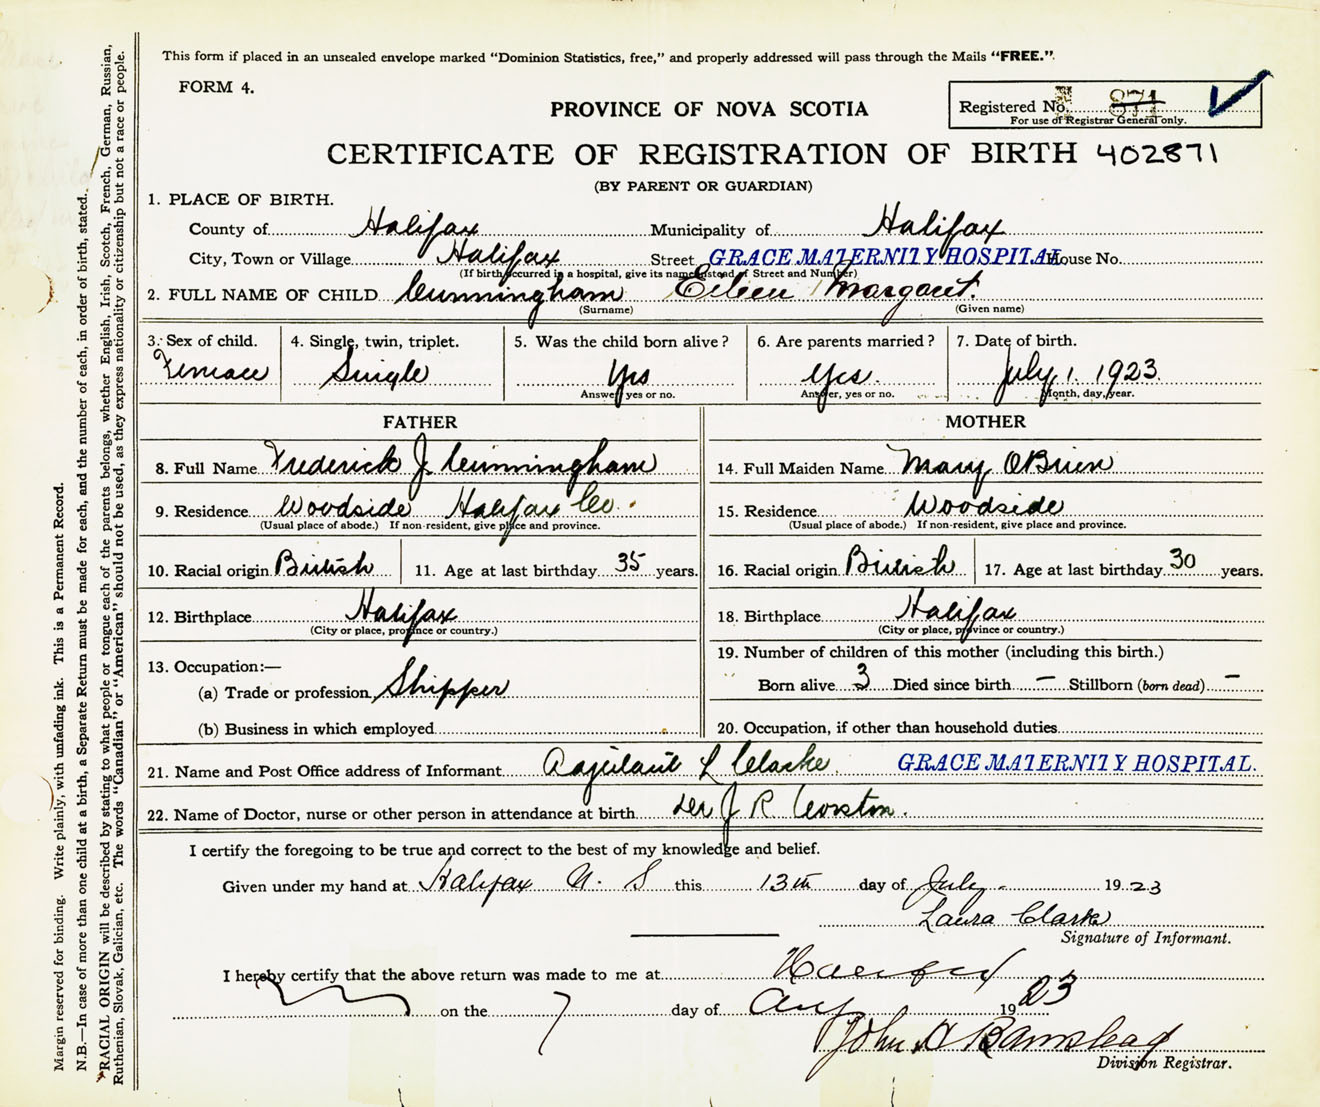 This form if placed in an unsealed envelope marked "Dominion Statistics, free," and properly addressed will pass through the Mails "FREE."
FORM 4.
PROVINCE OF NOVA SCOTIA
Registered No. 871
For use of Registrar General only.
CERTIFICATE OF REGISTRATION OF BIRTH 402871
(BY PARENT OR GUARDIAN)
1. PLACE OF BIRTH.
County of Halifax Municipality of Halifax
City, Town or Village Halifax Street GRACE MATERNITY HOSPITAL House No.
(If birth occurred in a hospital, give its name instead of Street and Number)
2. FULL NAME OF CHILD Cunningham Eileen Margaret.
(Surname) (Given name)
3. Sex of child. 4. Single, twin, triplet. 5. Was the child born alive? 6. Are parents married? 7. Date of birth.
Female Single Yes Yes. July 1. 1923.
Answer, yes or no. Answer, yes or no. Month, day, year.
FATHER MOTHER
8. Full Name Frederick J Cunningham 14. Full Maiden Name Mary OBrien
9. Residence Woodside Halifax Co. 15. Residence Woodside
(Usual place of abode.) If non-resident, give place and province. (Usual place of abode.) If non-resident, give place and province.
10. Racial origin British 11. Age at last birthday 35 years. 16. Racial origin British 17. Age at last birthday 30 years.
12. Birthplace Halifax 18. Birthplace Halifax
(City or place, province or country.) (City or place, province or country.)
13. Occupation:— 19. Number of children of this mother (including this birth.)
(a) Trade or profession Shipper Born alive 3 Died since birth – Stillborn (born dead) –
(b) Business in which employed 20. Occupation, if other than household duties
21. Name and Post Office address of Informant Adjutant L Clarke. GRACE MATERNITY HOSPITAL.
22. Name of Doctor, nurse or other person in attendance at birth J R Corston.
I certify the foregoing to be true and correct to the best of my knowledge and belief.
Given under my hand at Halifax N. S this 13th day of July 1923
Laura Clarke
Signature of Informant.
I hereby certify that the above return was made to me at Halifax
on the 7 day of Aug 1923
John A Barnstead
Division Registrar.
Margin reserved for binding. Write plainly, with unfading ink. This is a Permanent Record.
N.B.—In case of more than one child at a birth, a Separate Return must be made for each, and the number of each, in order of birth, stated.
*RACIAL ORIGIN will be described by stating to what people or tongue each of the parents belongs, whether English, Irish, Scotch, French, German, Russian,
Ruthenian, Slovak, Galician, etc. The words "Canadian" or "American" should not be used, as they express nationality or citizenship but not a race or people.